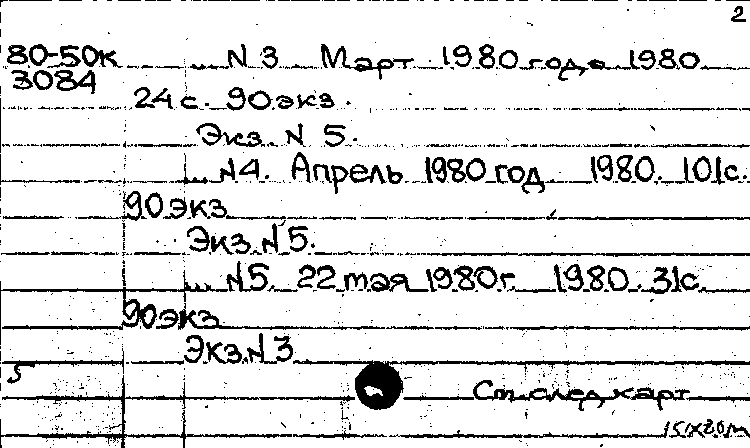 2
80-50к ... N 3 Март 1980 года 1980
3084
24 с. 90 экз.
Экз. N 5.
... N4. Апрель 1980 год 1980. 101с.
90 экз
Экз. N5.
... N5. 22 мая 1980г. 1980. 31с.
90 экз
Экз. N 3
5
См. след. карт